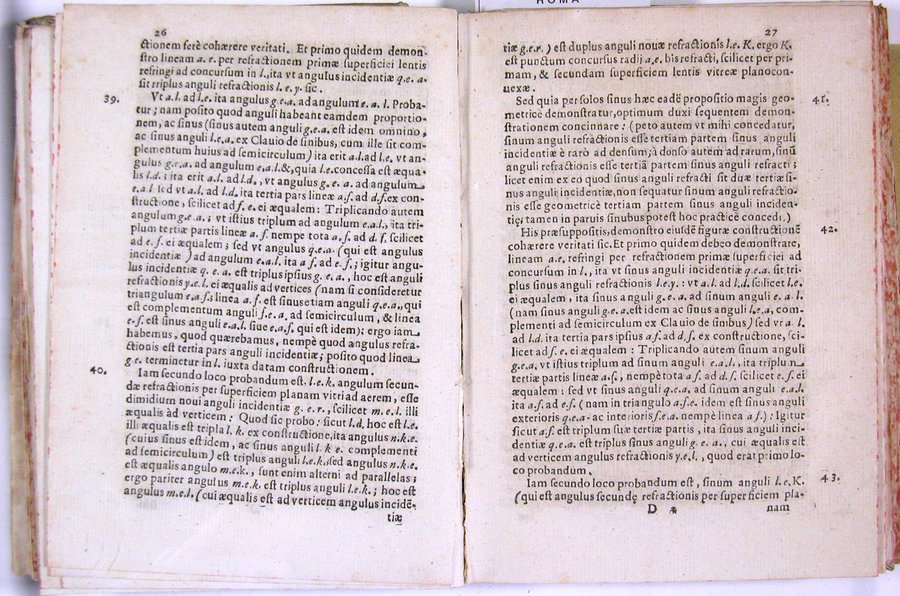 ROMA
26
ctionem ferè cohærere veritati. Et primo quidem demon-
stro lineam a. e. per refractionem primæ superficiei lentis
refringi ad concursum in l., ita vt angulus incidentiæ q. e. a.
sit triplus anguli refractionis l. e. y. sic.
39. Vt a. l. ad l. e. ita angulus g. e. a. ad angulum e. a. l. Proba-
tur; nam posito quod anguli habeant eamdem proportio-
nem, ac sinus (sinus autem anguli g. e. a. est idem omnino,
ac sinus anguli l. e. a. ex Clauio de sinibus, cum ille sit com-
plementum huius ad semicirculum) ita erit a. l. ad l. e. vt an-
gulus g. e. a. ad angulum e. a. l. &, quia l. e. concessa est æqua-
lis l. d.; ita erit a. l. ad l. d., vt angulus g. e. a. ad angulum
e. a. l. sed vt a. l. ad l. d. ita tertia pars lineæ a. f. ad d. f. ex con-
structione, scilicet ad f. e. ei æqualem: Triplicando autem
angulum g. e. a.; vt istius triplum ad angulum e. a. l., ita tri-
plum tertiæ partis lineæ a. f. nempe tota a. f. ad d. f. scilicet
ad e. f. ei æqualem; sed vt angulus q. e. a. (qui est angulus
incidentiæ) ad angulum e. a. l. ita a. f. ad e. f.; igitur angu-
lus incidentiæ q. e. a. est triplus ipsius g. e. a., hoc est anguli
refractionis y. e. l. ei æqualis ad vertices (nam si consideretur
triangulum e. a. f.; linea a. f. est sinus etiam anguli q. e. a., qui
est complementum anguli f. e. a, ad semicirculum, & linea
e. f. est sinus anguli e. a. l. siue e. a. f. qui est idem); ergo iam
habemus, quod quærebamus, nempè quod angulus refra-
ctionis est tertia pars anguli incidentiæ; posito quod linea
g e. terminetur in l. iuxta datam constructionem.
40. Iam secundo loco probandum est, l. e. k. angulum secun-
dæ refractionis per superficiem planam vitri ad aerem, esse
dimidium noui anguli incidentiæ g. e. r., scilicet m. e. l. illi
æqualis àd verticem: Quod sic probo: sicut l. d, hoc est l. e.
illi æqualis est tripla l. k. ex constructione, ita angulus n. k. e.
(cuius sinus est idem, ac sinus anguli l. k e. complementi
ad semicirculum) est triplus anguli l. e. k, sed angulus n. k. e.
est æqualis angulo m. e. k., sunt enim alterni ad parallelas;
ergo pariter angulus m. e. k. est triplus anguli l. e. k.; hoc est
angulus m. e. l. (cui æqualis est ad verticem angulus incidē-
tiæ
27
tiæ g. e. r. ) est duplus anguli nouæ refractionis l. e. K. ergo K.
est punctum concursus radij a. e. bis refracti, scilicet per pri-
mam, & secundam superficiem lentis vitreæ planocon-
uexæ.
41. Sed quia per solos sinus hæc eadē propositio magis geo-
metricè demonstratur, optimum duxi sequentem demon-
strationem concinnare: (peto autem vt mihi concedatur,
sinum anguli refractionis esse tertiam partem sinus anguli
incidentiæ è raro ad densum; à denso autem ad rarum, sinū
anguli refractionis esse tertiā partem sinus anguli refracti;
licet enim ex eo quod sinus anguli refracti sit duæ tertiæ si-
nus anguli incidentiæ, non sequatur sinum anguli refractio-
nis esse geometricè tertiam partem sinus anguli inciden-
tię; tamen in paruis sinubus potest hoc practicè concedi.)
42. His præsuppositis, demonstro eiusdē figuræ constructionē
cohærere veritati sic. Et primo quidem debeo demonstrare,
lineam a.e. refringi per refractionem primæ superficiei ad
concursum in l., ita vt sinus anguli incidentiæ q.e.a. sit tri-
plus sinus anguli refractionis l.e.y.: vt a.l. ad l.d. scilicet l.e.
ei æqualem, ita sinus anguli g. e. a. ad sinum anguli e. a. l.
(nam sinus anguli g.e.a. est idem ac sinus anguli l.e.a, com-
plementi ad semicirculum ex Clauio de sinibus) sed vt a. l.
ad l.d. ita tertia pars ipsius a.f. ad d.f. ex constructione, sci-
licet ad f. e. ei æqualem: Triplicando autem sinum anguli
g.e.a. vt istius triplum ad sinum anguli e.a.l., ita triplum
tertiæ partis lineæ a.f., nempè tota a.f. ad d.f. scilicet e.f. ei
æqualem: sed vt sinus anguli q.e.a. ad sinum anguli e.a.l.
ita a.f. ad e.f. (nam in triangulo a.f.e. idem est sinus anguli
exterioris q.e.a. ac interioris f.e.a. nempè linea a f.): Igitur
sicut a.f. est triplum suæ tertiæ partis, ita sinus anguli inci-
dentiæ q.e.a. est triplus sinus anguli g. e. a., cui æqualis est
ad verticem angulus refractionis y.e.l., quod erat primo lo-
co probandum.
43. Iam secundo loco probandum est, sinum anguli l.e.K.
(qui est angulus secundę refractionis per superficiem pla-
D * nam